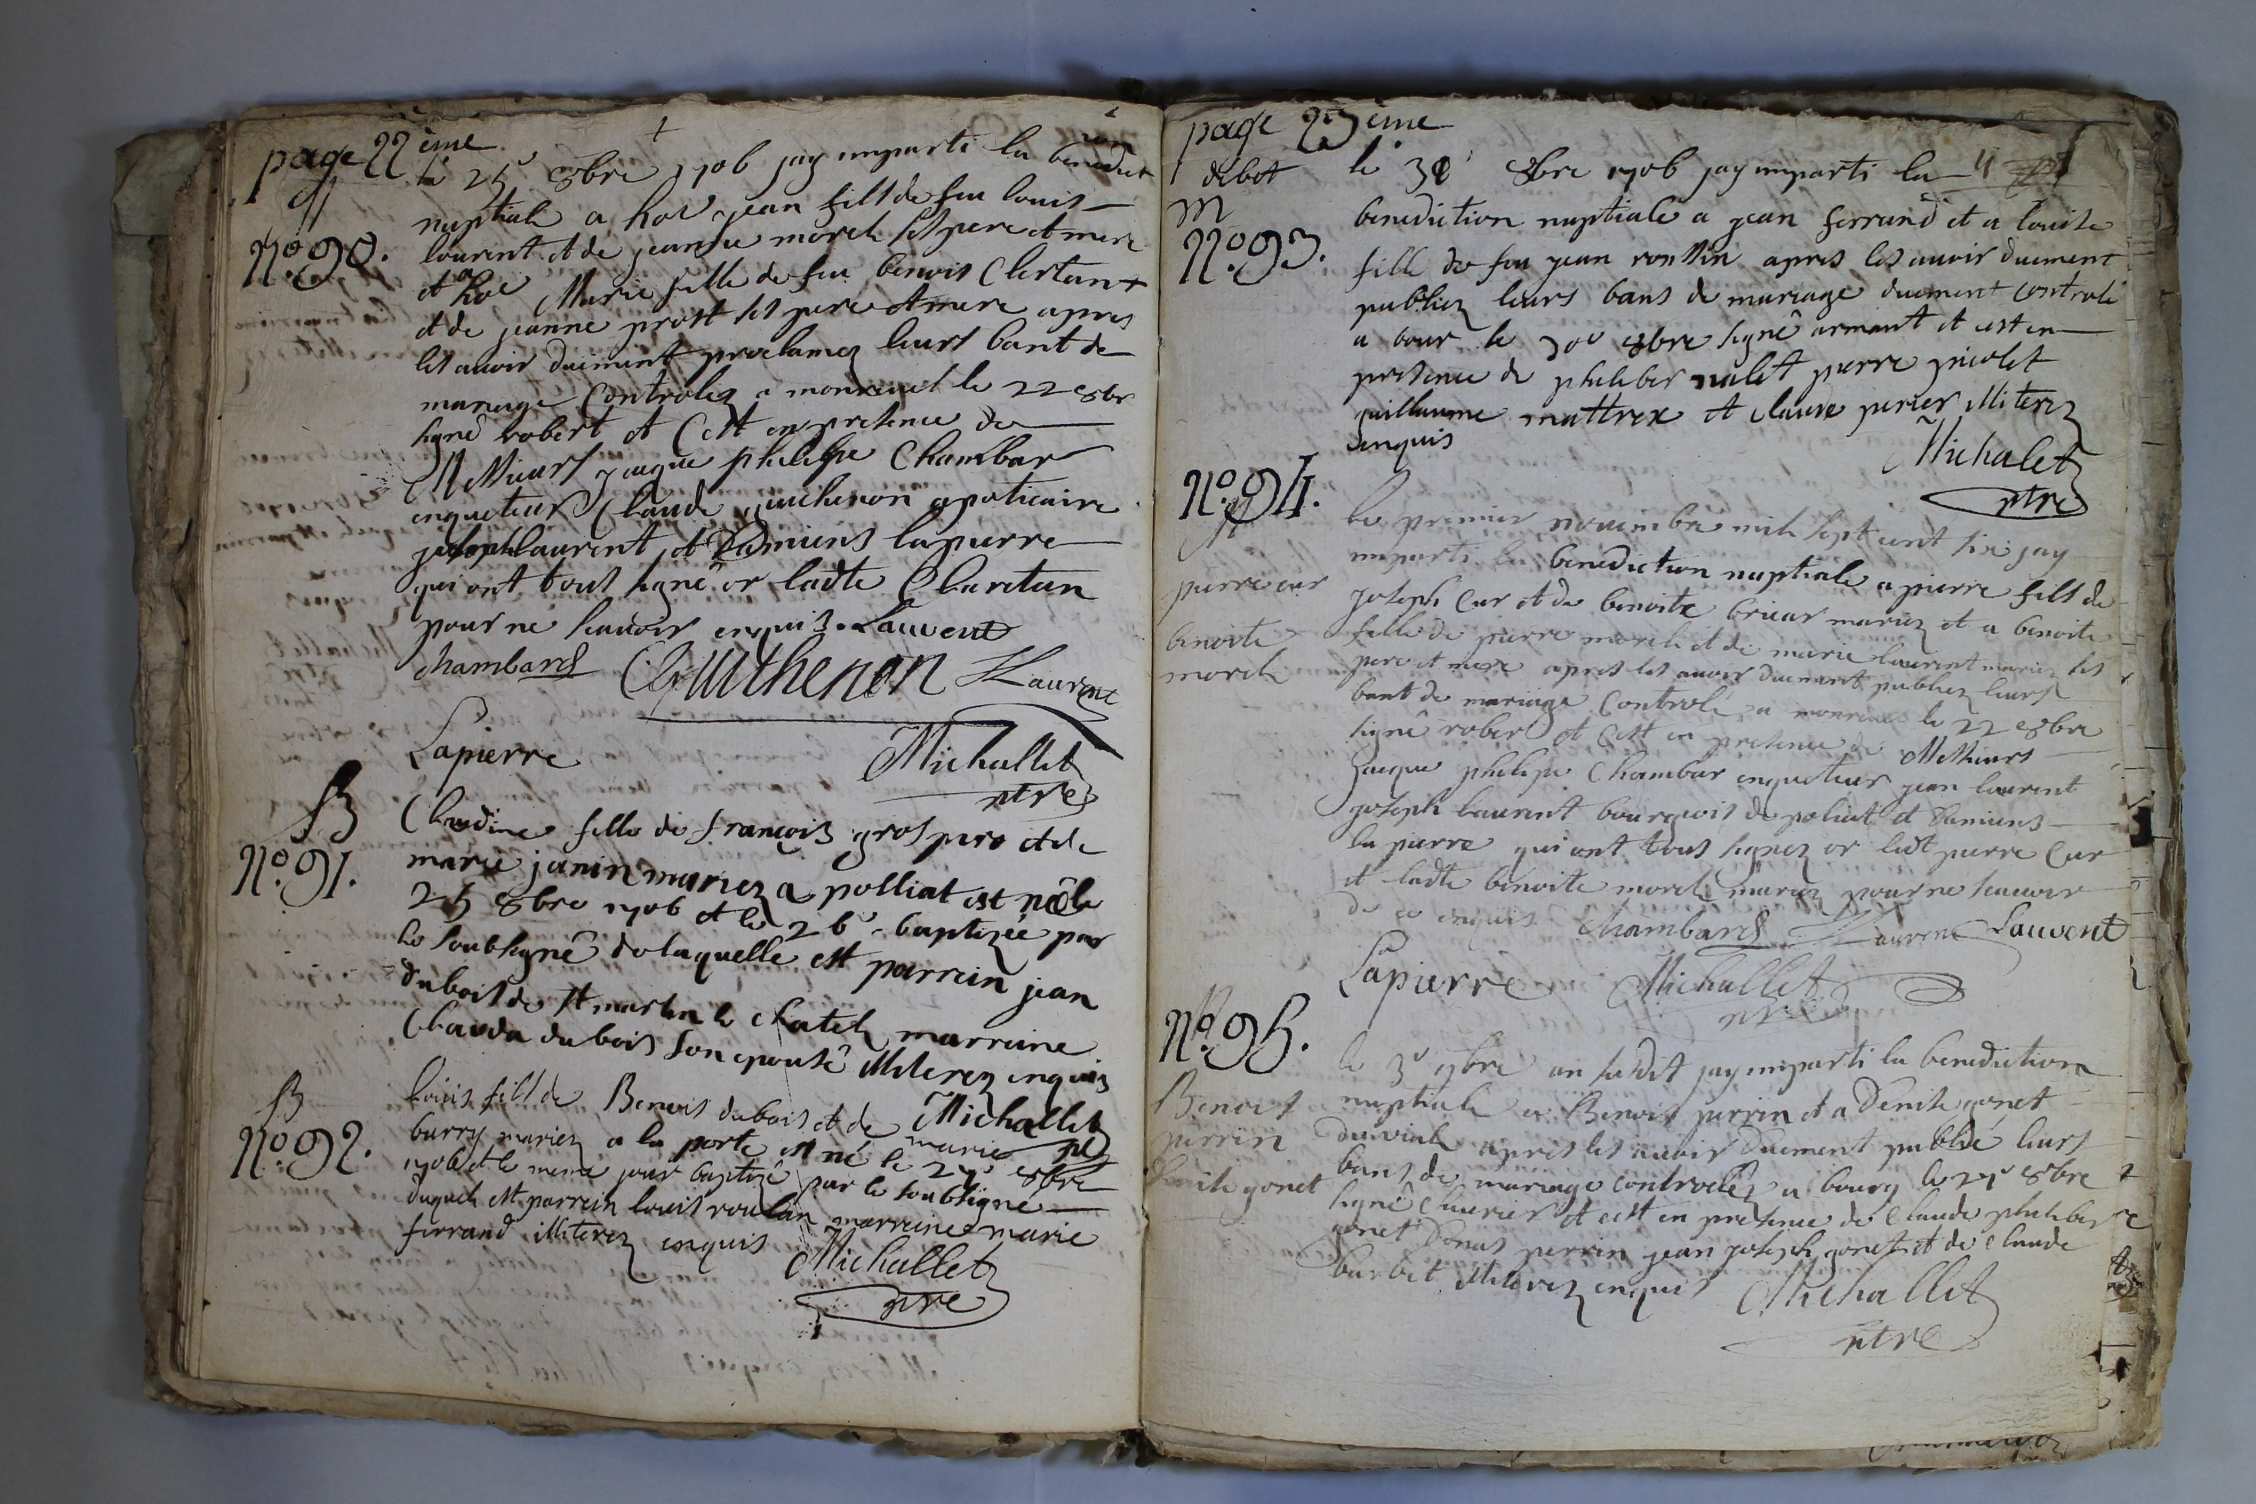 page 22 ème
le 25 8bre 1706 jay imparti la benedict
ion
nuptiale a hoe jean fils de feu louis
N.° 90.
laurent et de jeanne morel ses pere et mere
et a hoe Marie fille de feu benois Claretan
et de jeanne prost ses pere et mere apres
les avoir duement proclamez leurs bans de
mariage Controlez a monrevel le 22 8bre
signé robert et C'est en presence de
Messieurs jacque philippe Chambar
enqueteur Claude guichenon apoticaire
joseph laurent et Damiens lapierre
qui ont tous signé or ladte Claretan
pour ne scavoir enquis. Laurent
chambard C Guichenon J Laurent
Lapierre Michallet
ptre
B
N.° 91.
Claudine fille de françois gros pere et de
marie janin mariez a polliat est née le
25 8bre 1706 et le 26 baptizée par
le soubsigné de laquelle est parrein jean
dubois de st martin le chatel marreine
Clauda dubois son epouse illiterez enquis
Michallet
ptre
B
N.° 92.
louis fils de Benois dubois et de marie
burry mariez a la porte est né le 27 8bre
1706 et le meme jour baptizé par le soubsigné
duquel est parrein louis roulan marreine marie
ferrand illiterez enquis
Michallet
ptre
page 23 ème
debot
M
N.° 93.
le 30 8bre 1706 jay imparti la
benediction nuptiale a jean ferrand et a louise
fille de feu jean roussin apres les avoir duement
publiez leurs bans de mariage duement controlé
a bour le 30e 8bre signé armant et est en
presence de philiber nalet pierre picolet
guillaume mattrex et claude perier illiterez
enquis
Michalet
ptre
N.° 94.
M
pierre cur
benoite
morel
le premier novembre mil sept cent six jay
imparti la benediction nuptiale a pierre fils de
joseph Cur et de benoite briear mariez et a benoite
fille de pierre morel et de marie laurent mariez ses
pere et mere apres les avoir duement publiez leurs
bans de mariage Controlé a monrevel le 22 8bre
signé rober et C'est en presence de Messieurs
jacque philipe Chambar enqueteur jean laurent
joseph laurent bourgeois de poliat et Damiens
la pierre qui ont tous signez or ledt pierre Cur
et ladte benoite morel mariez pour ne scavoir
de ce enquis Chambard J Laurent Laurent
Lapierre Michallet
ptre
N.° 95.
Benois
perrin
denise gonet
le 3e 9bre an susdit jay imparti la benediction
nuptiale a Benois perrin et a Denise gonet
du vial apres les avoir duement publié leurs
bans de mariage controllez a bourg le 27 8bre
signé Chavrier et c'est en presence de claude philiber
gonet Donas perrin jean joseph gonet et de claude
burbet illiterez enquis
Michallet
ptre